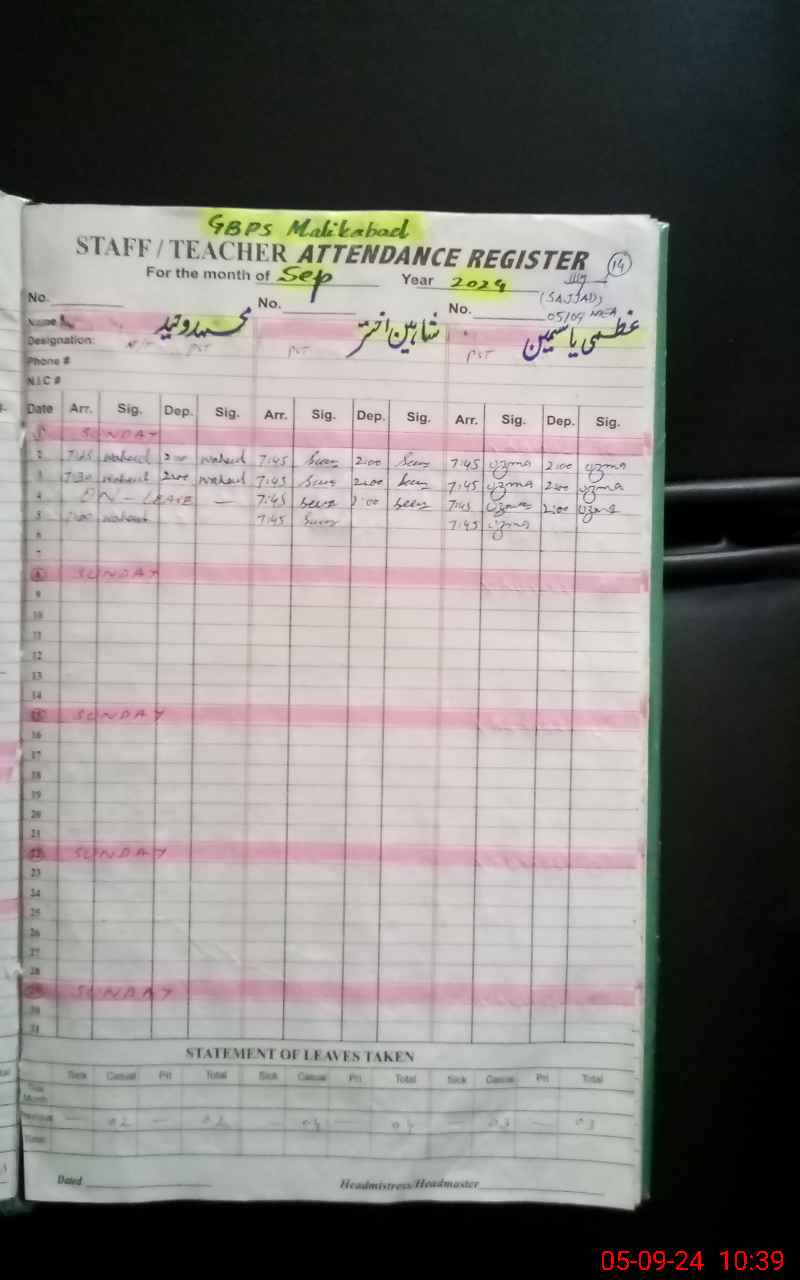 GBPS Malikabad
STAFF / TEACHER ATTENDANCE REGISTER 14
For the month of Sep Year 2024
(SAJJAD)
No. No. No. 05/09
Name محمد وحید شاہین اختر عظمی یاسمین
Designation: PST PST PST
Phone #
N.I.C #
Date Arr. Sig. Dep. Sig. Arr. Sig. Dep. Sig. Arr. Sig. Dep. Sig.
1 SUNDAY
2 7:45 waheed 2:00 waheed 7:45 2:00 7:45 uzma 2:00 uzma
3 7:30 waheed 2:00 waheed 7:45 2:00 7:45 uzma 2:00 uzma
4 ON - LEAVE — 7:45 2:00 7:45 uzma 2:00 uzma
5 waheed 7:45 7:45 uzma
6
7
8 SUNDAY
9
10
11
12
13
14
15 SUNDAY
16
17
18
19
20
21
22 SUNDAY
23
24
25
26
27
28
29 SUNDAY
30
31
STATEMENT OF LEAVES TAKEN
Sick Casual Pri Total Sick Casual Pri Total Sick Casual Pri Total
This Month
Previous — 02 — 02 — 04 — 04 — 03 — 03
Total
Dated Headmistress/Headmaster
05-09-24 10:39